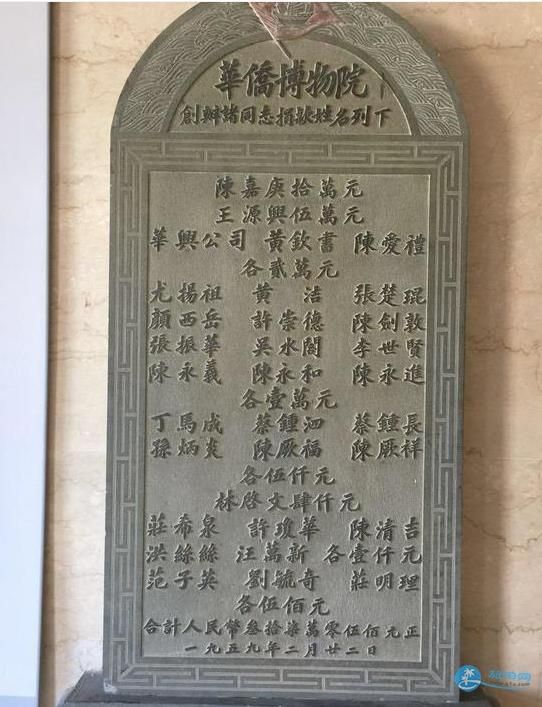 華僑博物院
創辦諸同志捐款姓名列下
陳嘉庚拾萬元
王源興伍萬元
華興公司 黃欽書 陳愛禮
各貳萬元
尤揚祖 黃潔 張楚琨
顏西岳 許崇德 陳劍敦
張振華 吳水閣 李世賢
陳永義 陳永和 陳永進
各壹萬元
丁馬成 蔡鍾泗 蔡鍾長
孫炳炎 陳厥福 陳厥祥
各伍仟元
林啓文肆仟元
莊希泉 許瓊華 陳清吉
洪絲絲 汪萬新 各壹仟元
范子英 劉毓奇 莊明理
各伍佰元
合計人民幣叁拾柒萬零伍佰元正
一九五九年二月廿二日